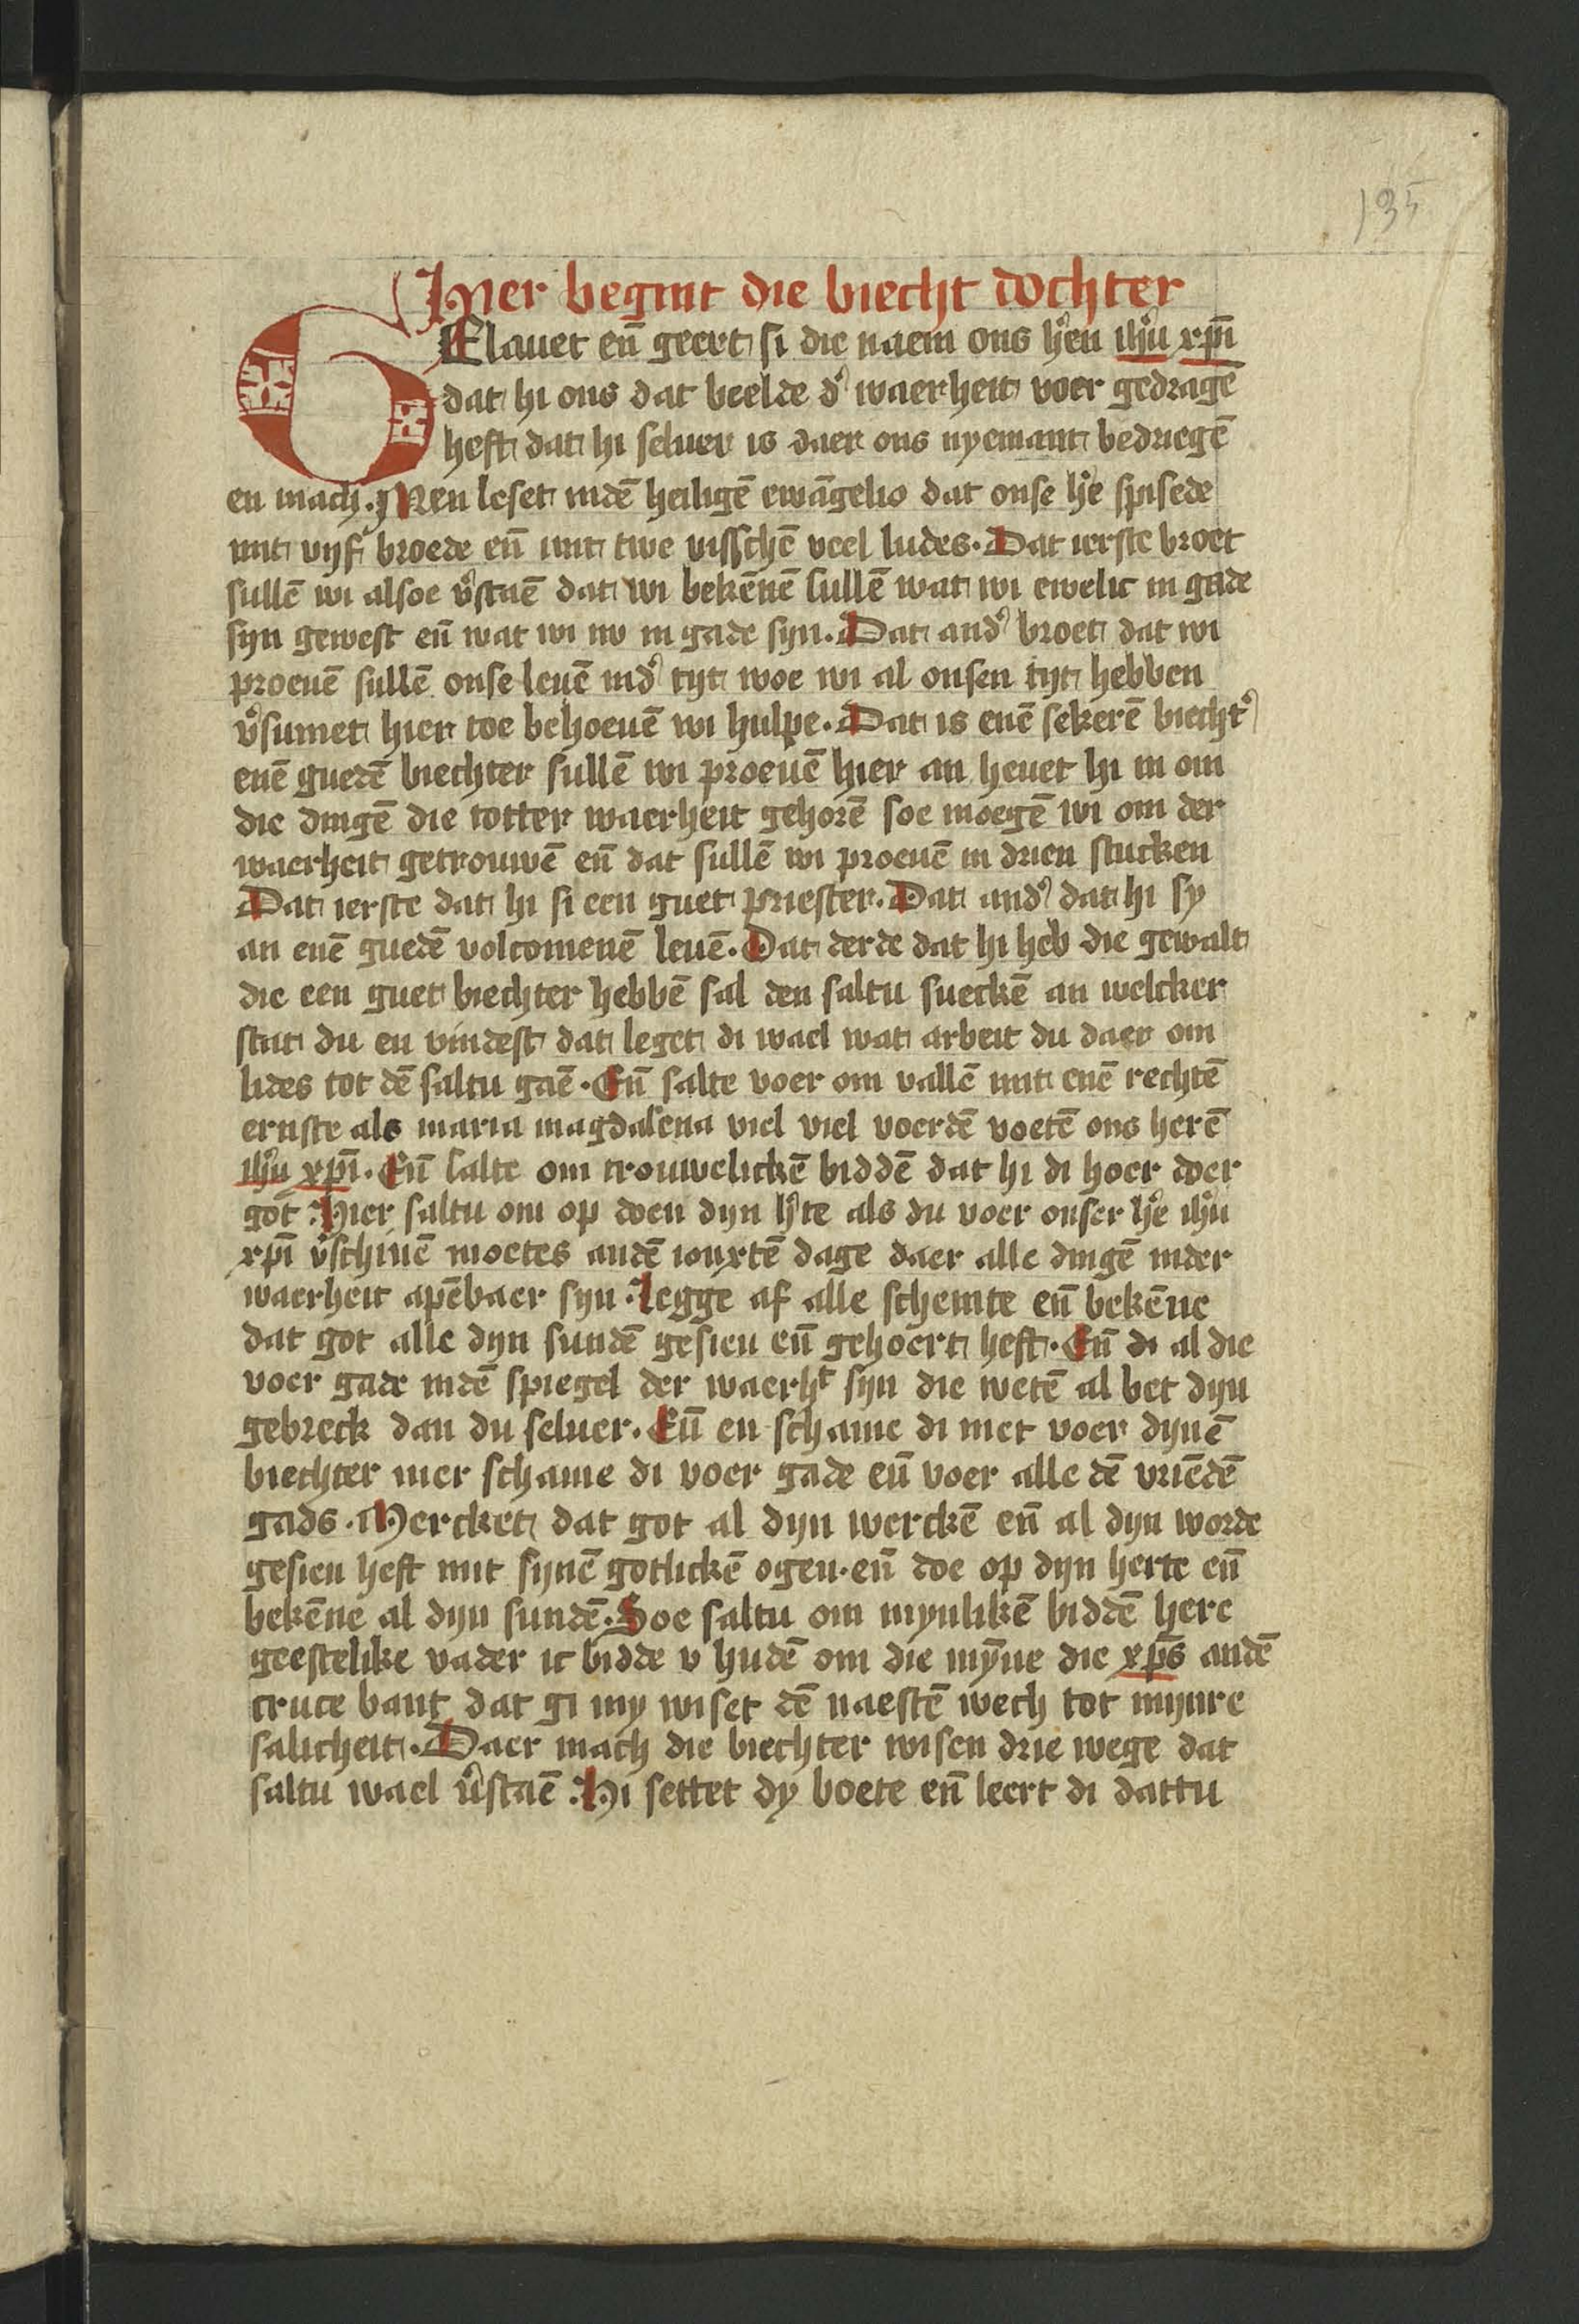 135
Hier begint die biecht dochter
GElauet en̄ geert si die naem ons h̕en ih̕u xp̄i
dat hi ons dat beelde d̕ waerheit voer gedragē
heft dat hi seluer is daer ons nyemant bedriegē
en mach. Men leset indē heiligē ewāgelio dat onse h̕e spisede
mit vijf broede en̄ mit twe visschē veel ludes. Dat ierste broet
sullē wi alsoe v̕staē dat wi bekēnē sullē wat wi ewelic in gade
syn gewest en̄ wat wi nv in gade syn. Dat and̕ broet dat wi
proeuē sullē onse leuē ind̕ tyt woe wi al onsen tyt hebben
v̕sumet hier toe behoeuē wi hulpe. Dat is enē sekerē biecht̕
enē guedē biechter sullē wi proeuē hier an heuet hi in om
die dingē die totter waerheit gehorē soe moegē wi om der
waerheit getrouwē en̄ dat sullē wi proeuē in drien stucken
Dat ierste dat hi si een guet priester. Dat and̕ dat hi sy
an enē guedē volcomenē leuē. Dat derde dat hi heb die gewalt
die een guet biechter hebbē sal den saltu sueckē an welcker
stat du en vindest dat leget di wael wat arbeit du daer om
lides tot dē saltu gaē. En̄ salte voer om vallē mit enē rechtē
ernste als maria magdalena viel viel voerdē voetē ons herē
ih̕u xp̄i. En̄ salte om trouwelickē biddē dat hi di hoer doer
got. Hier saltu om op doen dyn h̕te als du voer onser h̕e ih̕u
xp̄i v̕schinē moetes andē iouxtē dage daer alle dingē inder
waerheit apēbaer syn. Legge af alle schemte en̄ bekēne
dat got alle dyn sundē gesien en̄ gehoert heft. En̄ di al die
voer gade indē spiegel der waerhᵗ syn die wetē al bet dyn
gebreck dan du seluer. En̄ en schame di niet voer dynē
biechter mer schame di voer gade en̄ voer alle dē vriēdē
gads. Mercket dat got al dyn werckē en̄ al dyn worde
gesien heft mit synē gotlickē ogen. en̄ doe op dyn herte en̄
bekēne al dyn sundē. Soe saltu om mynlikē biddē here
geestelike vader ic bidde v hudē om die mȳne die xp̄s andē
cruce bant dat gi my wiset dē naestē wech tot mynre
salicheit. Daer mach die biechter wisen drie wege dat
saltu wael v̕staē. Hi settet dy boete en̄ leert di dattu